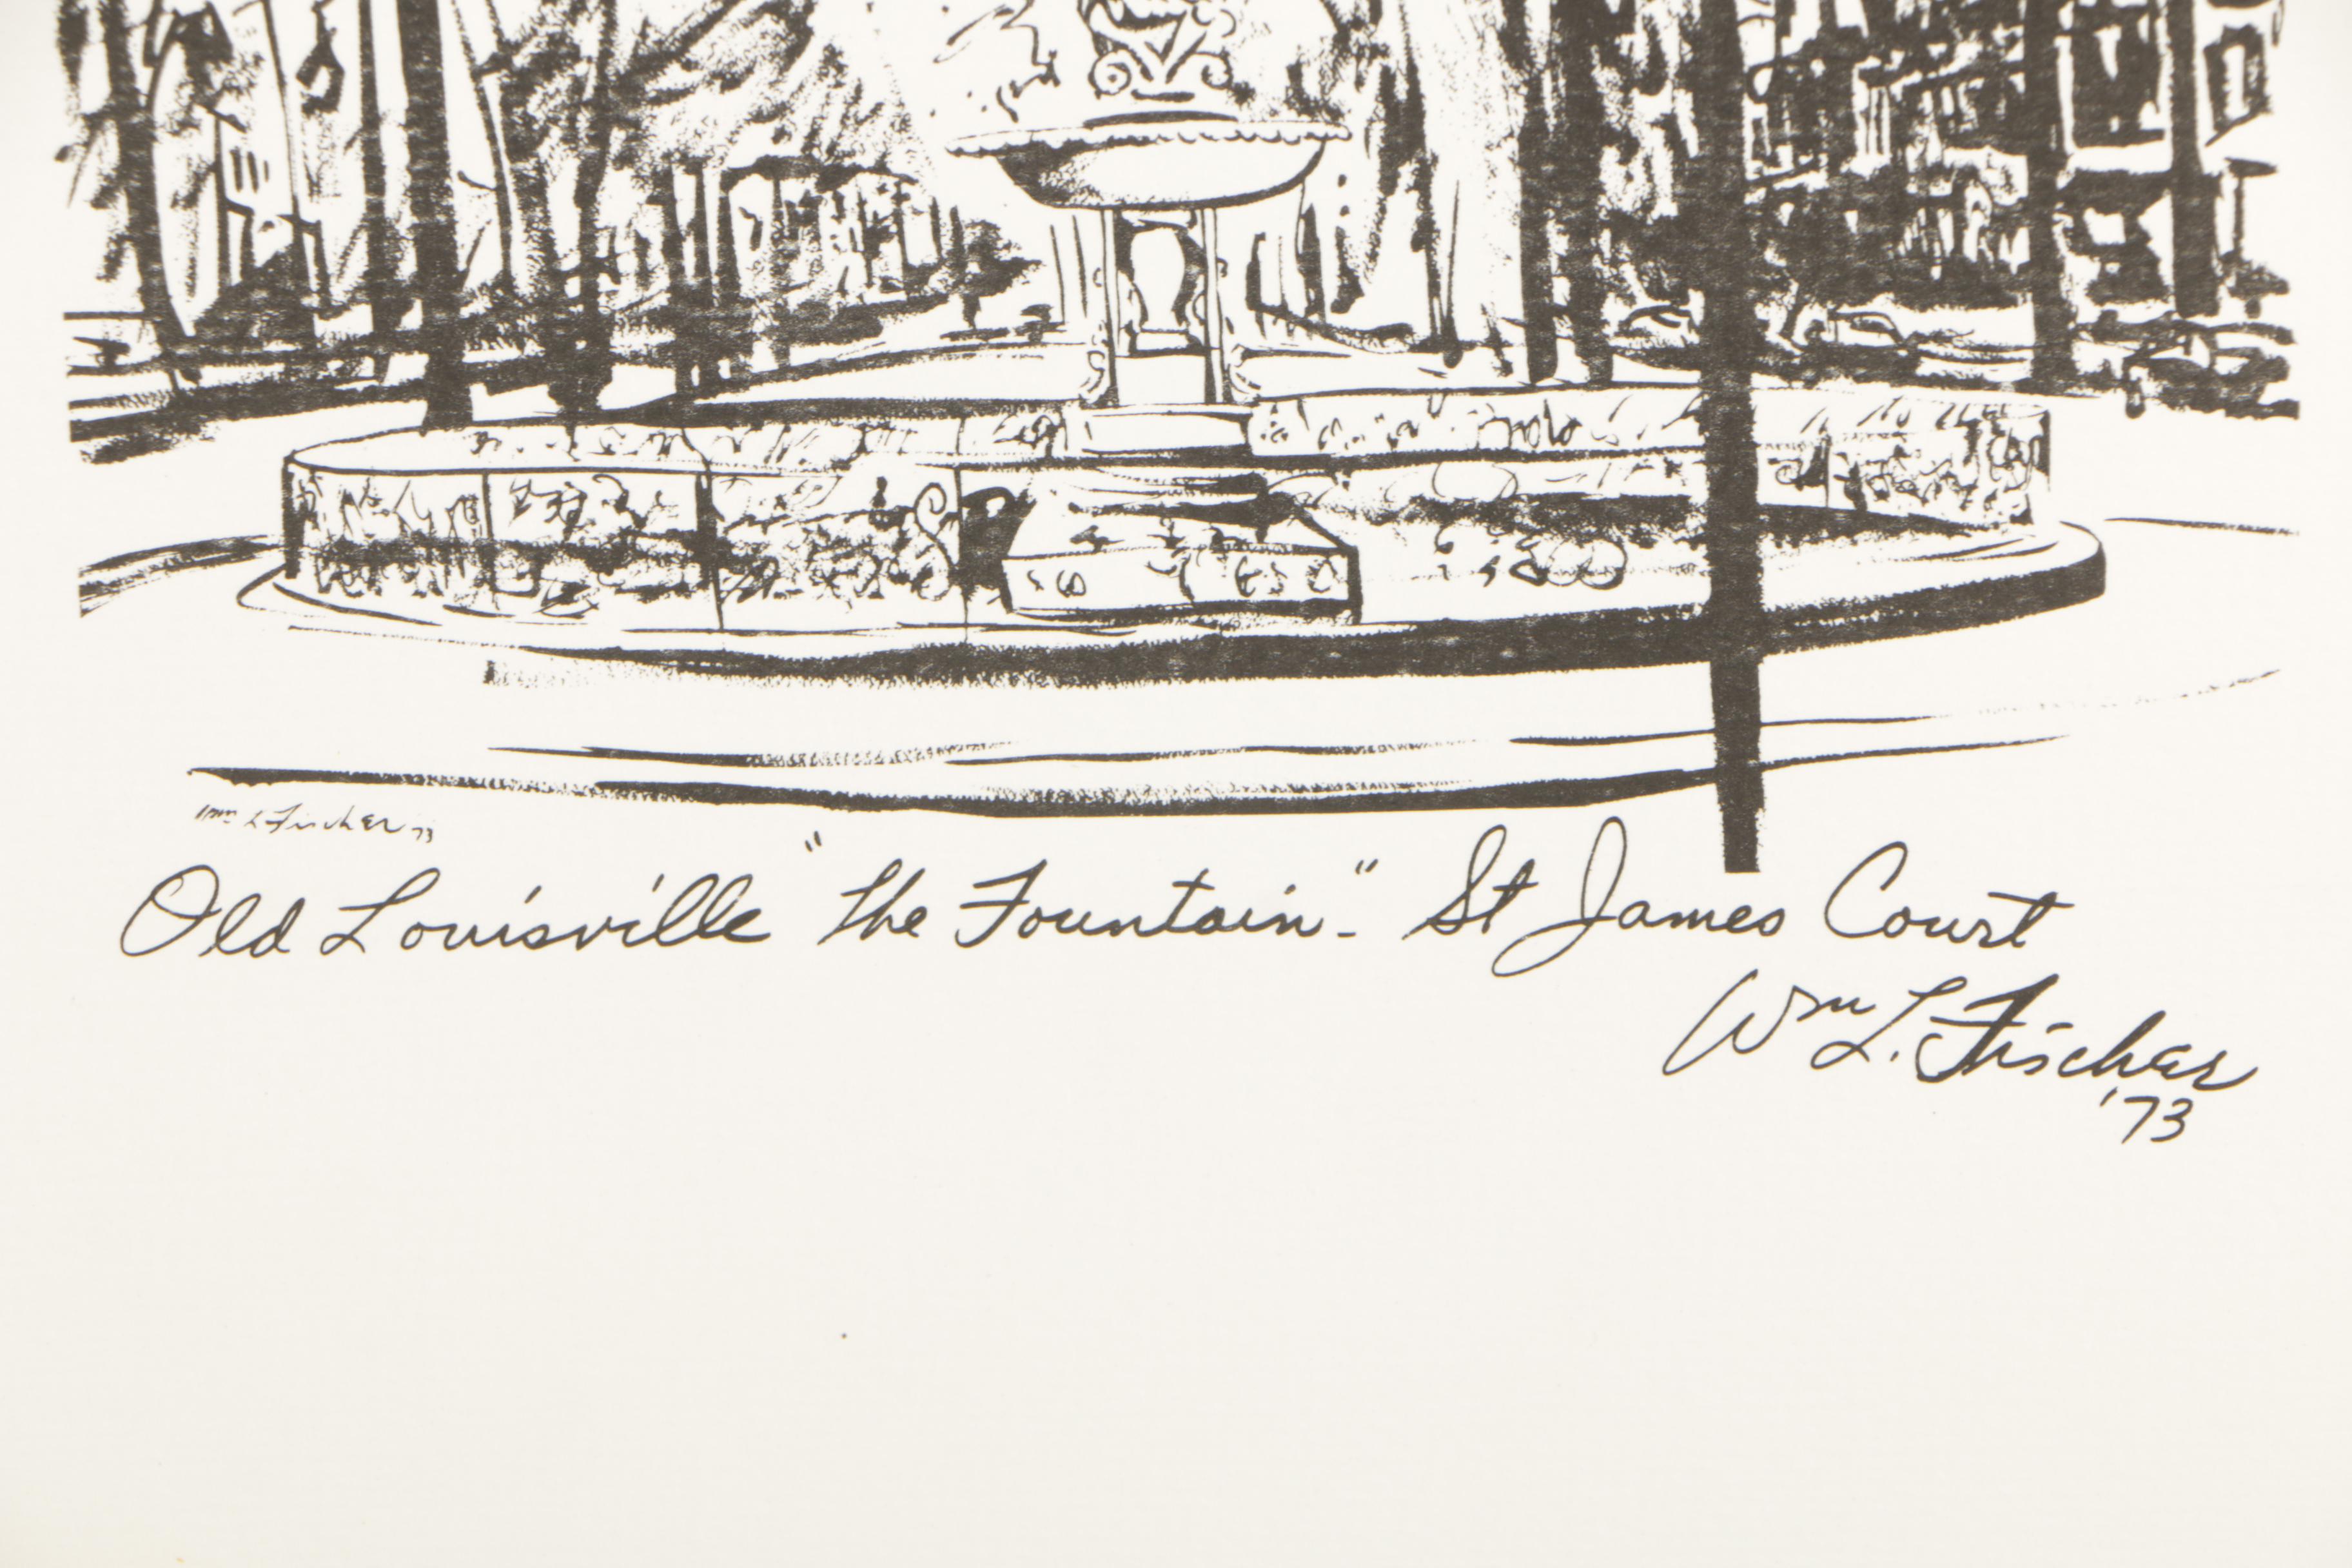 Wm L Fischer 73
Old Louisville "The Fountain-" St James Court
Wm L. Fischer
'73